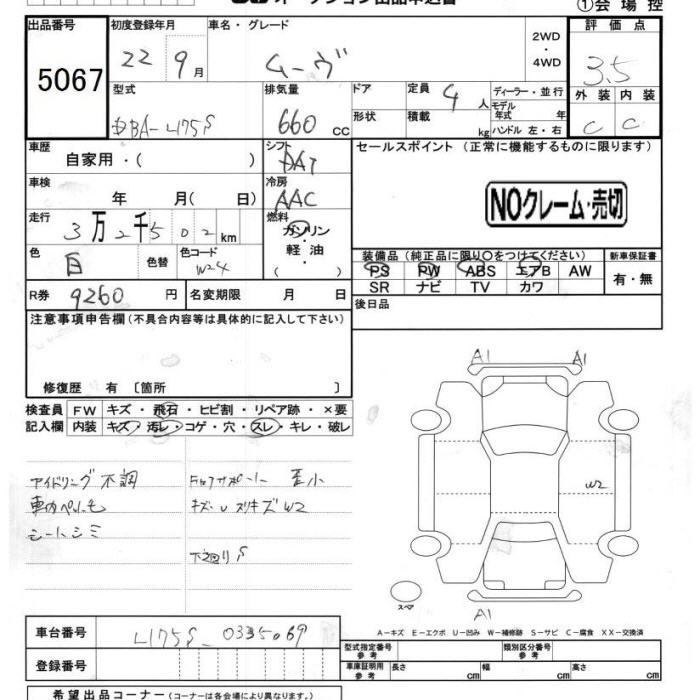 オークション出品申込書
①会場控
出品番号
5067
初度登録年月
22 9月
車名・グレード
ムーヴ
2WD
・
4WD
評価点
3.5
外装 内装
C C
型式
DBA-L175S
排気量
660 cc
ドア
形状
定員 4人
積載 kg
ディーラー・並行
モデル
年式 年
ハンドル 左・右
車歴
自家用・( )
シフト
DAT
セールスポイント(正常に機能するものに限ります)
NOクレーム・売切
車検
年 月( 日)
冷房
AAC
走行
3万2千502km
燃料
ガソリン
・
軽油
( )
色
白
色替
色コード
W24
装備品(純正品に限り○をつけてください)
PS PW ABS エアB AW
SR ナビ TV カワ
新車保証書
有・無
R券 9260円
名変期限 月 日
後日品
注意事項申告欄(不具合内容等は具体的に記入して下さい)
修復歴 有〔箇所 〕
検査員
記入欄
FW キズ・飛石・ヒビ割・リペア跡・×要
内装 キズ・汚レ・コゲ・穴・スレ・キレ・破レ
アイドリング不調
車内ペットモ
シートシミ
キズ・U スリキズ W2
下廻りS
A1
A1
W2
スペア
A1
A-キズ E-エクボ U-凹み W-補修跡 S-サビ C-腐食 XX-交換済
車台番号
L175S-0335069
登録番号
型式指定番号
参考
類別区分番号
参考
車庫証明用
参考
長さ cm
幅 cm
高さ cm
希望出品コーナー(コーナーは各会場により異なります。)